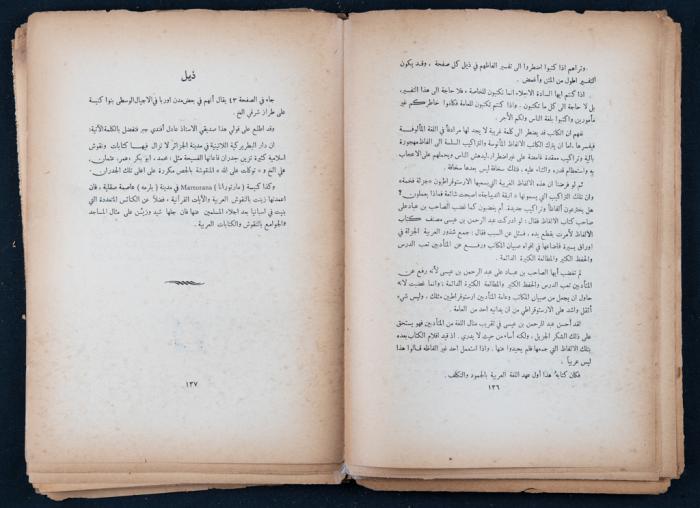 وتراهم اذا كتبوا اضطروا الى تفسير الفاظهم في ذيل كل صفحة ، وقد يكون
التفسير اطول من المتن وأغمض .
اذا كنتم ايها السادة الاجلاء انما تكتبون للخاصة ، فلا حاجة الى هذا التفسير ،
بل لا حاجة الى كل ما تكتبون . واذا كنتم تكتبون للعامة فكانوا خاطركم غير
مأمورين واكتبوا بلغة الناس ولكم الأجر .
نفهم ان الكاتب قد يضطر الى كلمة غريبة لا يجد لها مرادفاً في اللغة المألوفة
فيفسرها . اما ان يترك الكاتب الالفاظ المأنوسة والتراكيب السلسة الى الفاظ مهجورة
بالية وتراكيب معقدة غامضة على غير اضطرار ، ليدهش الناس ويحملهم على الاعجاب
به واستعظام قدره ، والثناء عليه ، فذلك سخافة ليس بعدها سخافة .
ثم لو فرضنا ان هذه الالفاظ الغريبة التي يسميها الارستوقراطيون «جزلة فخمة»
وان تلك التراكيب التي يسمونها « انيقة الديباجة» اصبحت شائعة فماذا يعملون ؟
هل يخترعون ألفاظاً وتراكيب جديدة . أم يغضبون كما غضب الصاحب بن عباد على
صاحب كتاب الالفاظ فقال : لو ادركت عبد الرحمن بن عيسى مصنف كتاب
الالفاظ لأمرت بقطع يده ، فسئل عن السبب فقال : جمع شذور العربية الجزلة في
اوراق يسيرة فأضاعها في افواه صبيان المكاتب ورفع عن المتأدبين تعب الدرس
والحفظ الكثير والمطالعة الكثيرة الدائمة .
لم تغضب أيها الصاحب بن عباد على عبد الرحمن بن عيسى لأنه رفع عن
المتأدبين تعب الدرس والحفظ الكثير والمطالعة الكثيرة الدائمة ، وانما غضبت لأنه
حاول ان يجعل من صبيان المكاتب وعامة المتأدبين ارستوقراطيين مثلك ، وليس شيء
أثقل واشد على الارستوقراطي من ان يدانيه احد من العامة .
لقد أحسن عبد الرحمن بن عيسى في تقريب منال اللغة من المتأدبين فهو يستحق
على ذلك الشكر الجزيل ، ولكنه أساء من حيث لا يدري . اذ قيد اقلام الكتاب بعده
بتلك الالفاظ التي جمعها فلم يحيدوا عنها . واذا استعمل احد غير الفاظه قالوا هذا
ليس عربياً .
فكان كتابه هذا أول عهد اللغة العربية بالجمود والتكلف .
١٣٦
ذيل
جاء في الصفحة ٤٣ يقال أنهم في بعض مدن اوربا في الاجيال الوسطى بنوا كنيسة
على طراز شرقي الخ .
وقد اطلع على قولي هذا صديقي الاستاذ عادل أفندي جبر فتفضل بالكلمة الآتية:
ان دار البطريركية اللاتينية في مدينة الجزائر لا تزال فيها كتابات ونقوش
اسلامية كثيرة تزين جدران قاعاتها الفسيحة مثل : محمد ، ابو بكر ، عمر ، عثمان ،
علي الخ و « توكلت على الله » المنقوشة بالجص مكررة على اعلى تلك الجدران .
وكذا كنيسة (مارتورانا) Martorana في مدينة ( بلرمه ) عاصمة صقلية ، فان
اعمدتها زينت بالنقوش العربية والآيات القرآنية . فضلاً عن الكنائس المتعددة التي
بنيت في اسبانيا بعد اجلاء المسلمين عنها فان جلها شيد وزين على مثال المساجد
والجوامع بالنقوش والكتابات العربية .
١٣٧